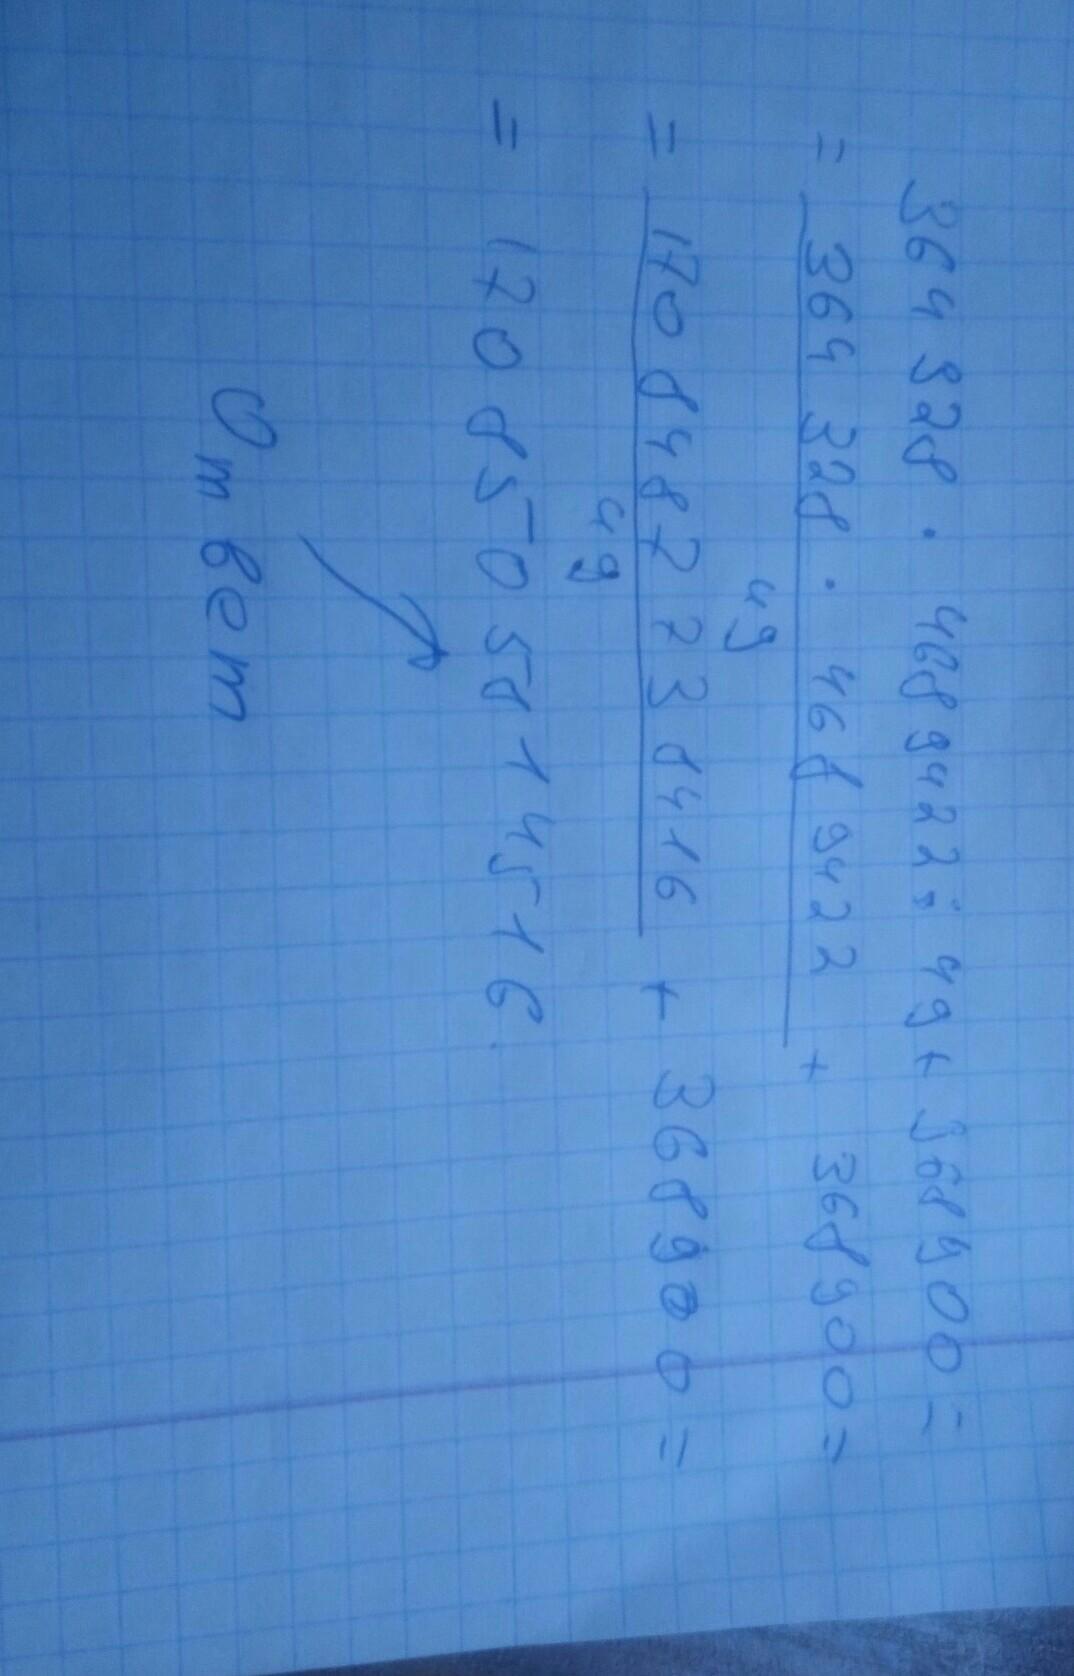 364 328 · 4689422 : 49 + 368900 =
= 364 328 · 4689422 + 368900 =
49
= 1708487733 8416 + 368900 =
49
= 170 8505814516
Ответ